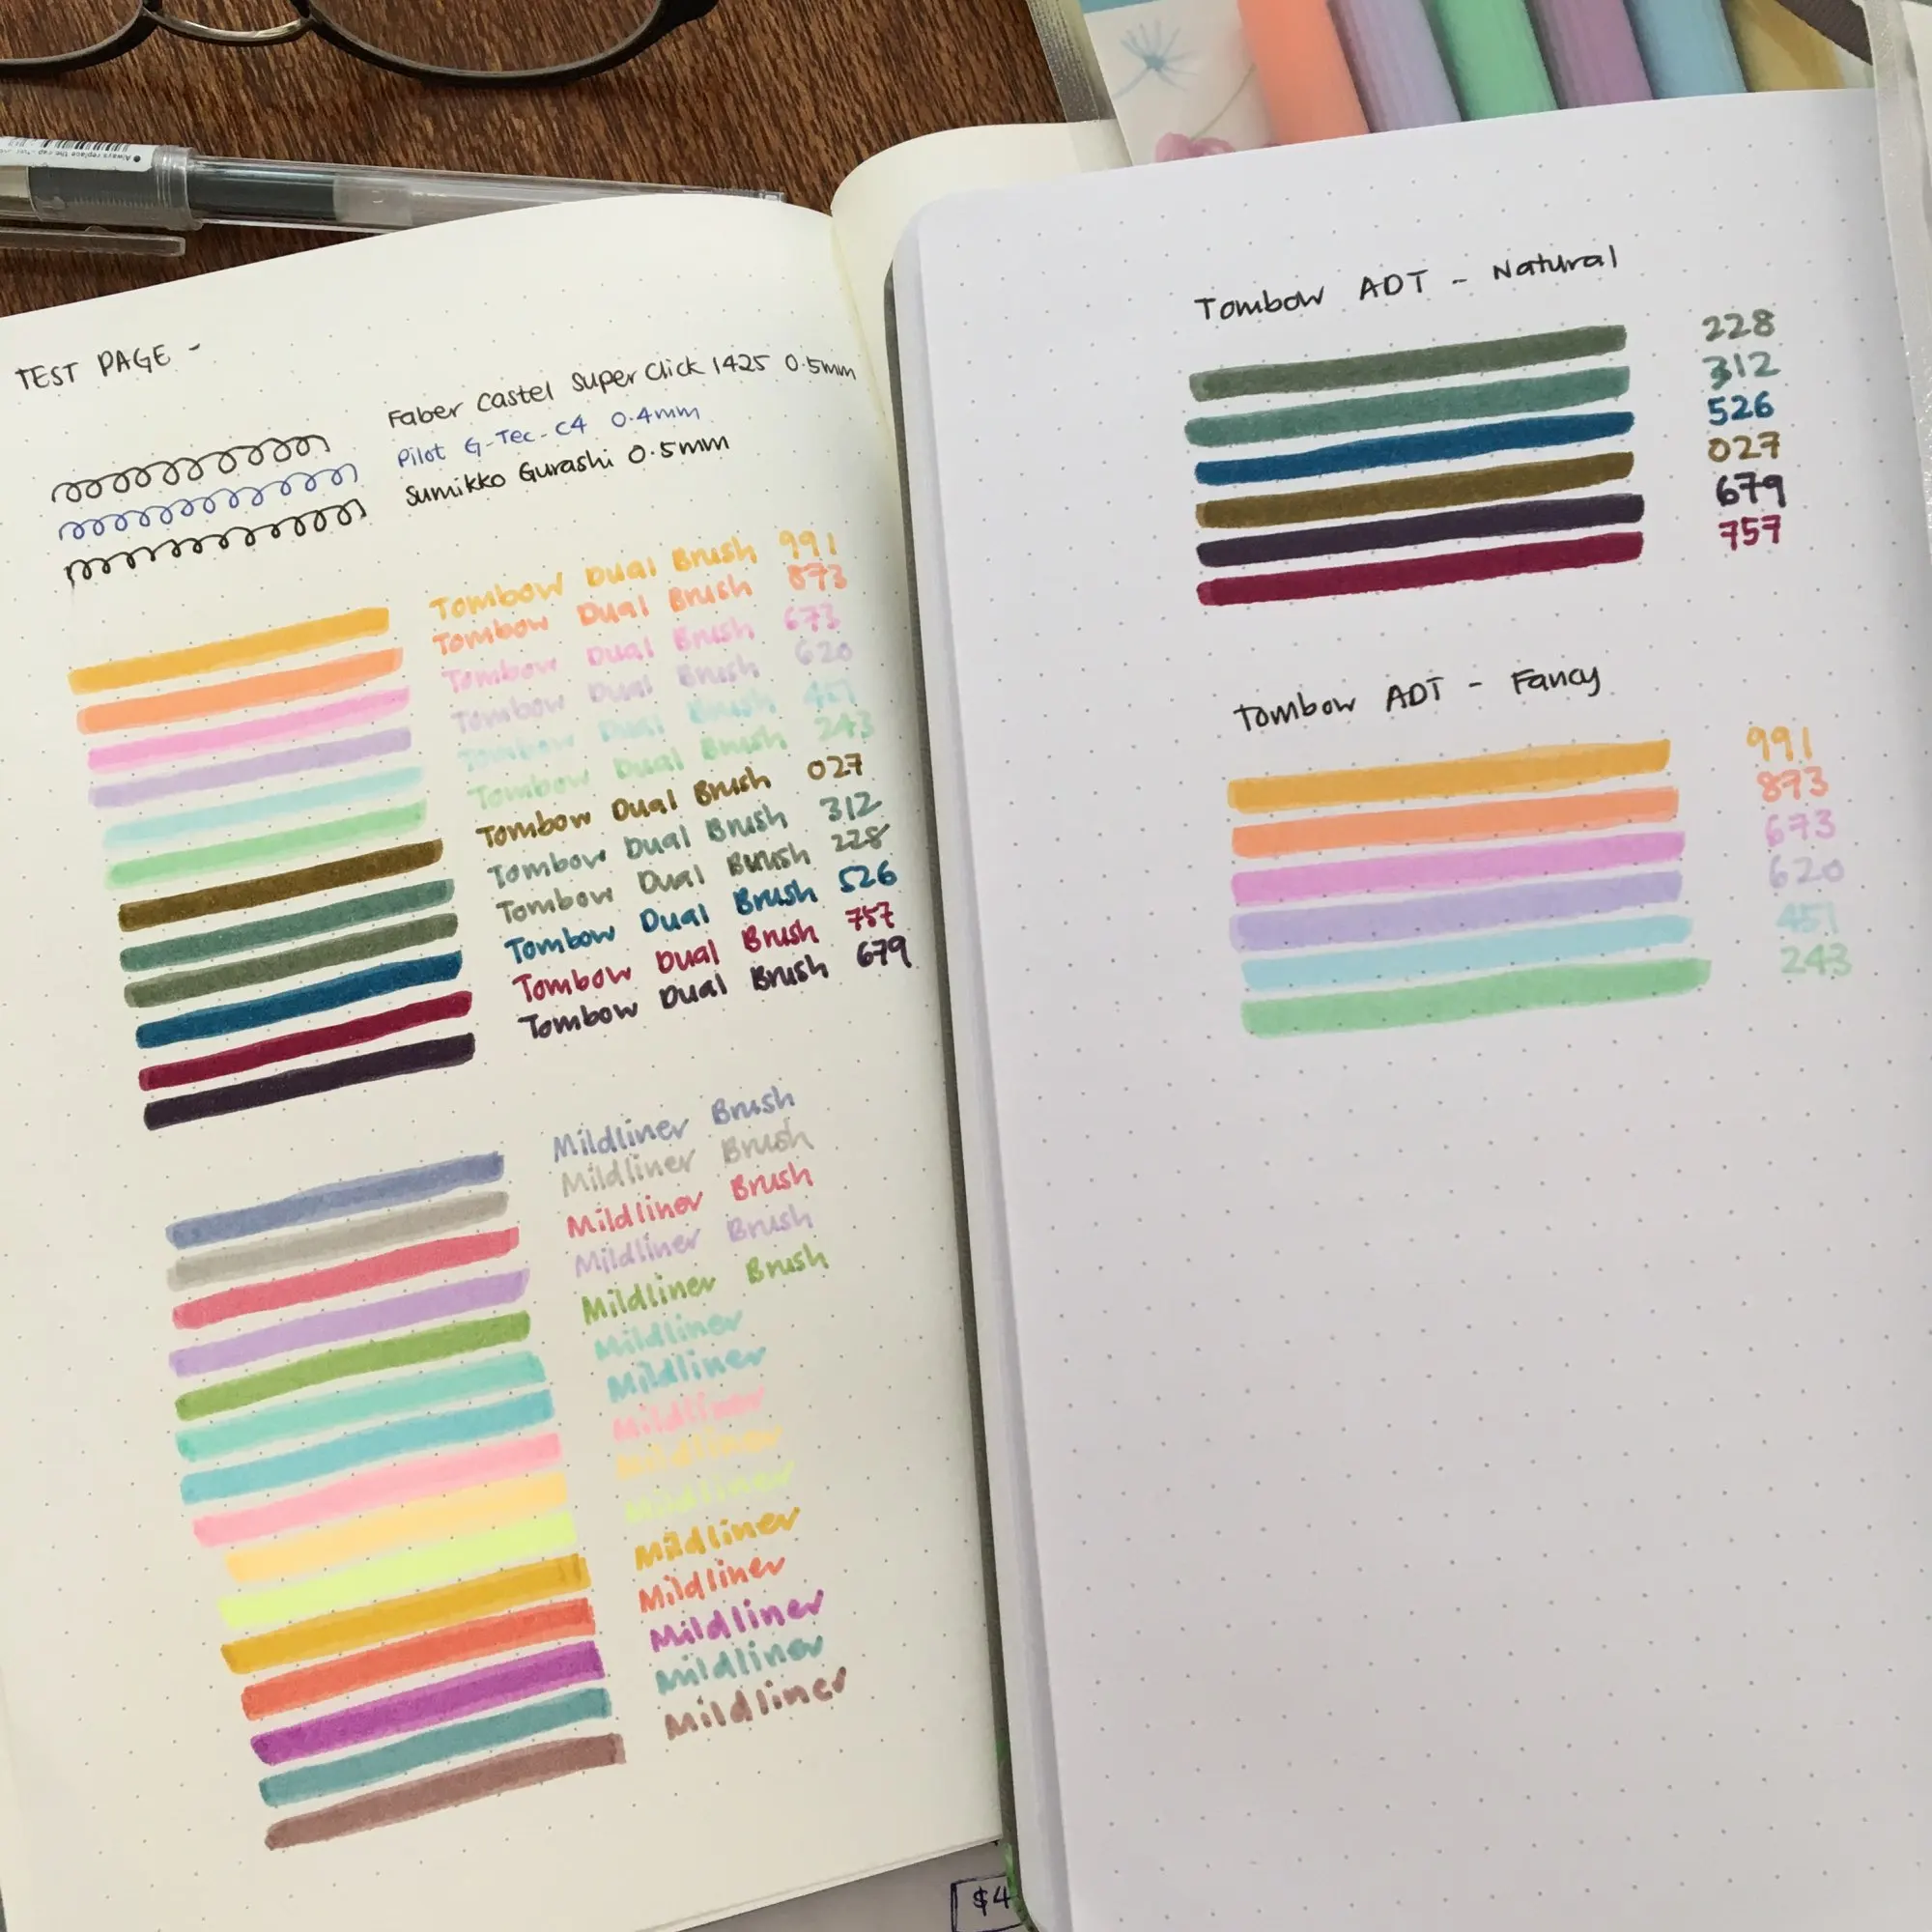 Always replace the cap
TEST PAGE -
Faber Castel Super Click 1425 0.5mm
Pilot G-Tec-C4 0.4mm
Sumikko Gurashi 0.5mm
Tombow Dual Brush 991
Tombow Dual Brush 873
Tombow Dual Brush 673
Tombow Dual Brush 620
Tombow Dual Brush 451
Tombow Dual Brush 243
Tombow Dual Brush 027
Tombow Dual Brush 312
Tombow Dual Brush 228
Tombow Dual Brush 526
Tombow Dual Brush 757
Tombow Dual Brush 679
Mildliner Brush
Mildliner Brush
Mildliner Brush
Mildliner Brush
Mildliner Brush
Mildliner
Mildliner
Mildliner
Mildliner
Mildliner
Mildliner
Mildliner
Mildliner
Mildliner
Mildliner
Tombow ADT - Natural
228
312
526
027
679
757
Tombow ADT - Fancy
991
873
673
620
451
243
$4